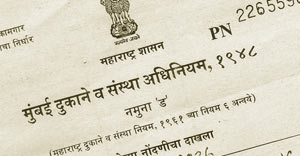 कामगार
चा निर्धार
PN
226559
महाराष्ट्र शासन
मुंबई दुकाने व संस्था अधिनियम, १९४८
नमुना 'ड'
(महाराष्ट्र दुकाने व संस्था नियम, १९६१ च्या नियम ६ अन्वये)
नोंदणीचा दाखला